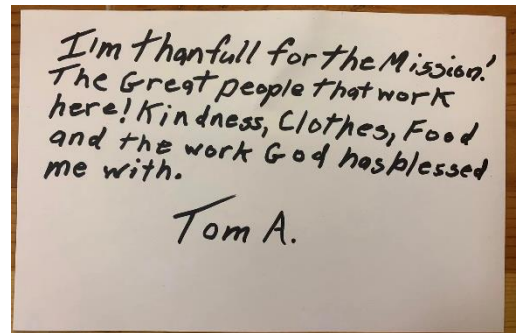 I'm thanfull for the Mission!
The Great people that work
here! Kindness, Clothes, Food
and the work God has blessed
me with.
Tom A.